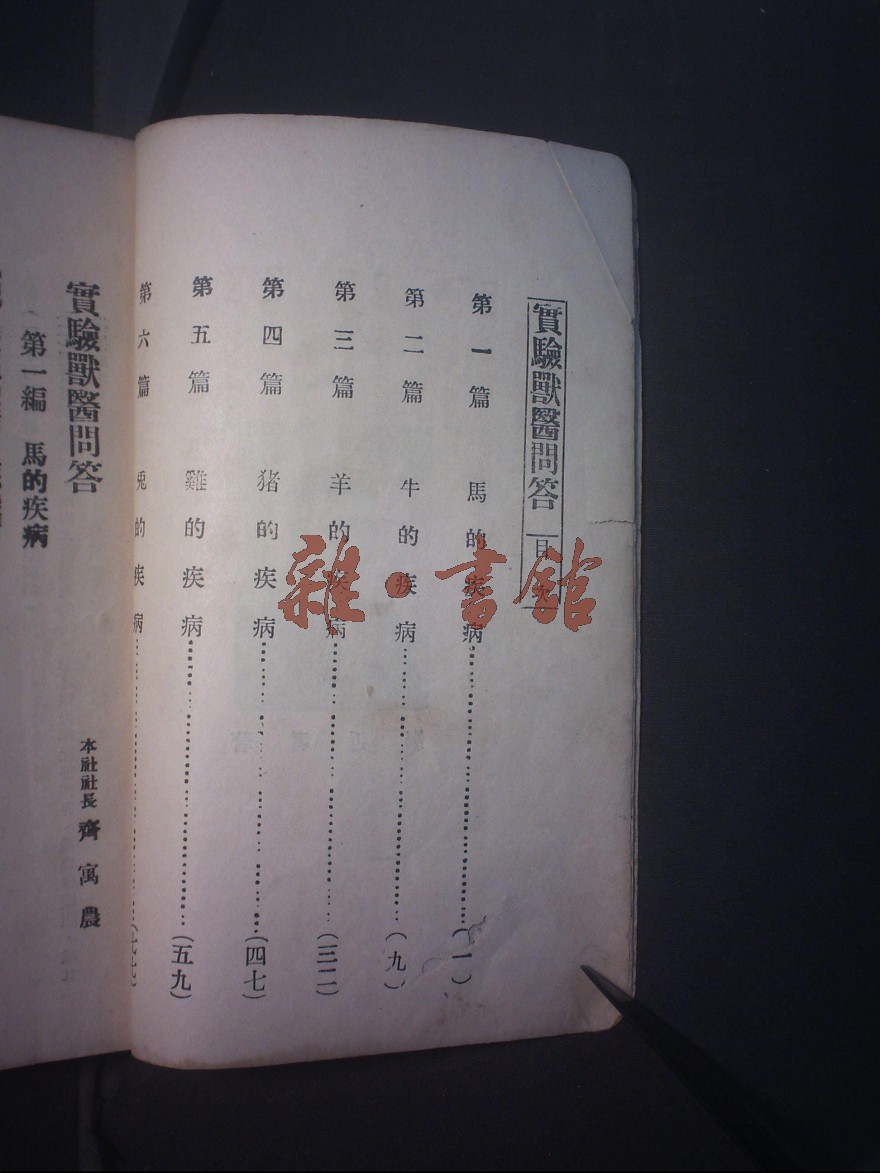 實驗獸醫問答 目次
第一篇 馬的疾病⋯⋯⋯⋯(一)
第二篇 牛的疾病⋯⋯⋯⋯(九)
第三篇 羊的疾病⋯⋯⋯⋯(三二)
第四篇 猪的疾病⋯⋯⋯⋯(四七)
第五篇 雞的疾病⋯⋯⋯⋯(五九)
第六篇 兎的疾病⋯⋯⋯⋯(七七)
實驗獸醫問答
本社社長 齊寓農
第一編 馬的疾病
雜·書館